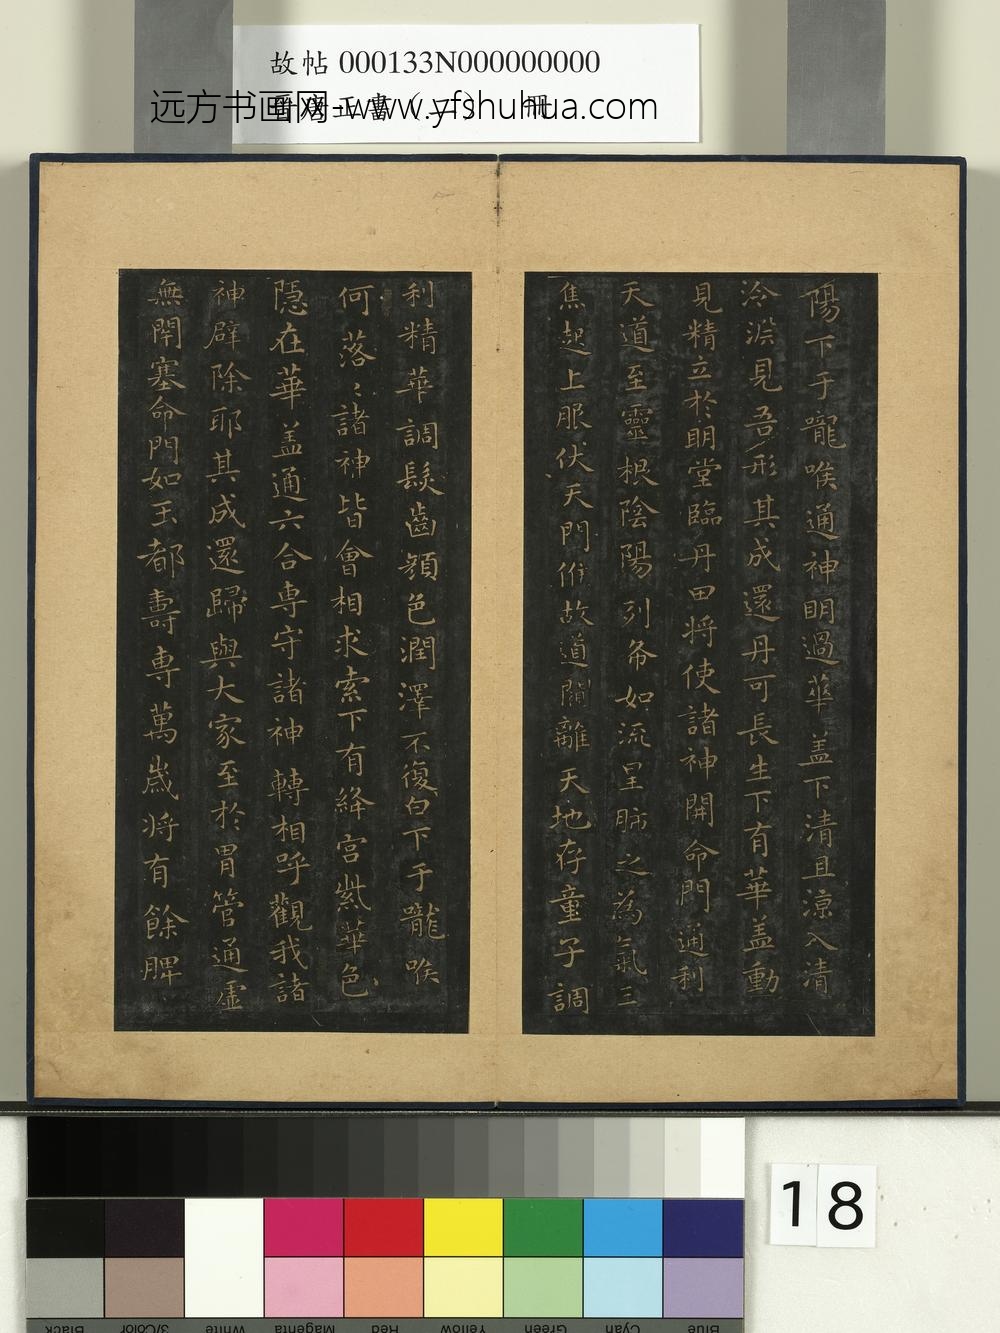 故帖 000133N000000000
远方书画网-www.yfshuhua.com
陽下于嚨喉通神明過華盖下清且涼入清
泠淵見吾形其成還丹可長生下有華盖動
見精立於明堂臨丹田将使諸神開命門通利
天道至靈根陰陽列布如流星肺之為氣三
焦起上服伏天門候故道闚離天地存童子調
利精華調髮齒顏色潤澤不復白下于嚨喉
何落〻諸神皆會相求索下有絳宫紫華色
隱在華盖通六合専守諸神轉相呼觀我諸
神辟除耶其成還歸與大家至於胃管通虛
無閉塞命門如玉都壽専萬歲将有餘脾
18
Black
3/Color
White
Magenta
Red
Yellow
Green
Cyan
Blue